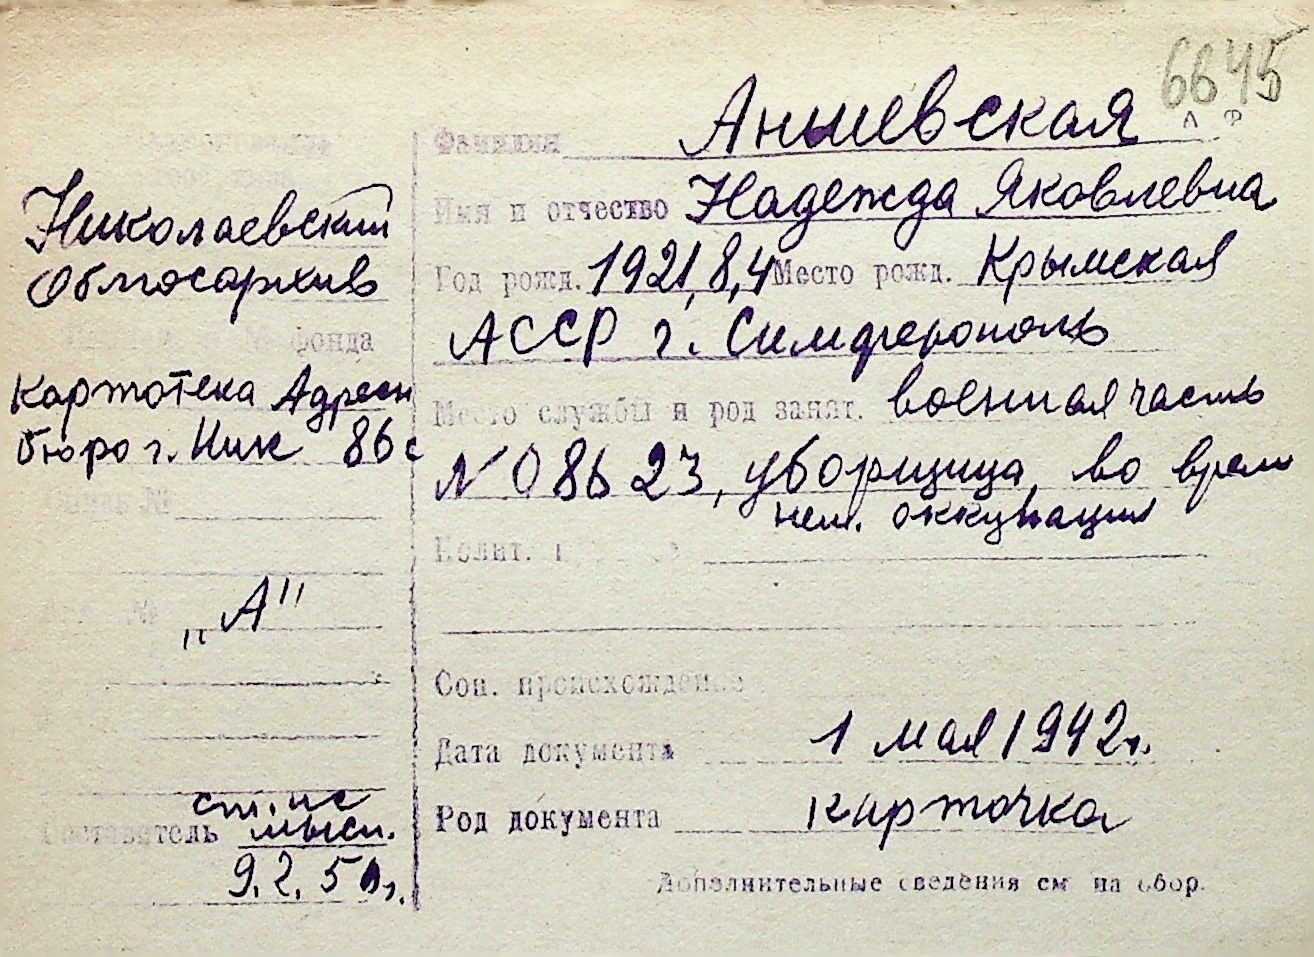 6645
А Ф
Фамилия Анишевская
Имя и отчество Надежда Яковлевна
Год рожд. 1921,8,4 Место рожд. Крымская
АССР г. Симферополь
Место службы и род занят. военная часть
N 08623, уборщица, во врем
нем. оккупации
Полит.
Соц. происхождение
Дата документа 1 мая 1942г.
Род документа карточка
Дополнительные сведения см на обор.
Николаевский
Облгосархив
№ фонда
Картотека Адресн
бюро г. Ник 86с
Опись №
№ „А"
Составитель ст. нс
мысл.
9.2.50г.